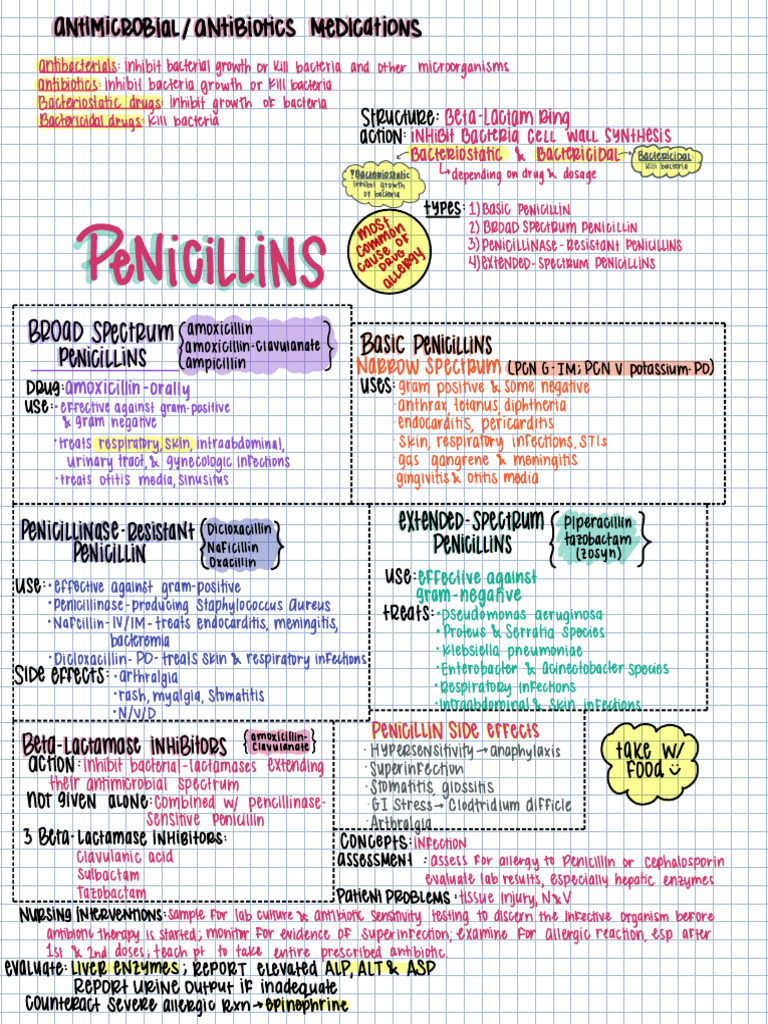 Antimicrobial/Antibiotics Medications
Antibacterials: inhibit bacterial growth or kill bacteria and other microorganisms
Antibiotics: inhibit bacteria growth or kill bacteria
Bacteriostatic drugs: inhibit growth of bacteria
Bactericidal drugs: kill bacteria
Structure: Beta-Lactam Ring
Action: Inhibit bacteria cell wall synthesis
Bacteriostatic & Bactericidal
Bactericidal:
kill bacteria
depending on drug & dosage
Bacteriostatic
inhibit growth
of bacteria
Types: 1) Basic Penicillin
2) Broad Spectrum Penicillin
3) Penicillinase-Resistant Penicillins
4) Extended-Spectrum Penicillins
Penicillins
most
common
cause of
drug
allergy
Broad Spectrum
Penicillins
amoxicillin
amoxicillin-clavulanate
ampicillin
Drug: amoxicillin-orally
Use: • effective against gram-positive
& gram negative
• treats respiratory, skin, intraabdominal,
urinary tract, & gynecologic infections
• treats otitis media, sinusitus
Basic Penicillins
Narrow Spectrum (PCN G-IM; PCN V potassium-PO)
Uses: gram positive & some negative
• anthrax, tetanus, diphtheria
• endocarditis, pericarditis
• skin, respiratory infections, STIs
• gas gangrene & meningitis
gingivitis & otitis media
Penicillinase-Resistant
Penicillin
Dicloxacillin
Naficillin
Oxacillin
Use: • effective against gram-positive
• Penicillinase-producing Staphylococcus aureus
• Nafcillin-IV/IM-treats endocarditis, meningitis,
bacteremia
• Dicloxacillin-PO-treats skin & respiratory infections
Side effects: • arthralgia
• rash, myalgia, stomatitis
• N/V/D
Extended-Spectrum
Penicillins
Piperacillin
tazobactam
(zosyn)
Use: effective against
gram-negative
Treats: • pseudomonas aeruginosa
• Proteus & Serratia species
• Klebsiella pneumoniae
• Enterobacter & Acinectobacter species
• Respiratory infections
• Intraabdominal & skin infections
Beta-Lactamase Inhibitors
amoxicillin-
clavulanate
Action: inhibit bacterial-lactamases extending
their antimicrobial spectrum
Not given alone: combined w/ pencillinase-
sensitive Penicillin
3 Beta-Lactamase Inhibitors:
Clavulanic acid
Sulbactam
Tazobactam
Penicillin Side Effects
• Hypersensitivity → anaphylaxis
• Superinfection
• Stomatitis, glossitis
• GI Stress → Clodtridium difficle
• Arthralgia
take w/
food
Concepts: infection
Assessment: assess for allergy to penicillin or cephalosporin
evaluate lab results, especially hepatic enzymes
Patient Problems • tissue injury, N&V
Nursing Interventions: sample for lab culture & antibiotic sensitivity testing to discern the infective organism before
antibiotic therapy is started; monitor for evidence of superinfection; examine for allergic reaction, esp after
1st & 2nd doses; teach pt to take entire prescribed antibiotic.
Evaluate: Liver enzymes; report elevated ALP, ALT & ASP
Report urine output if inadequate
Counteract severe allergic rxn → epinephrine